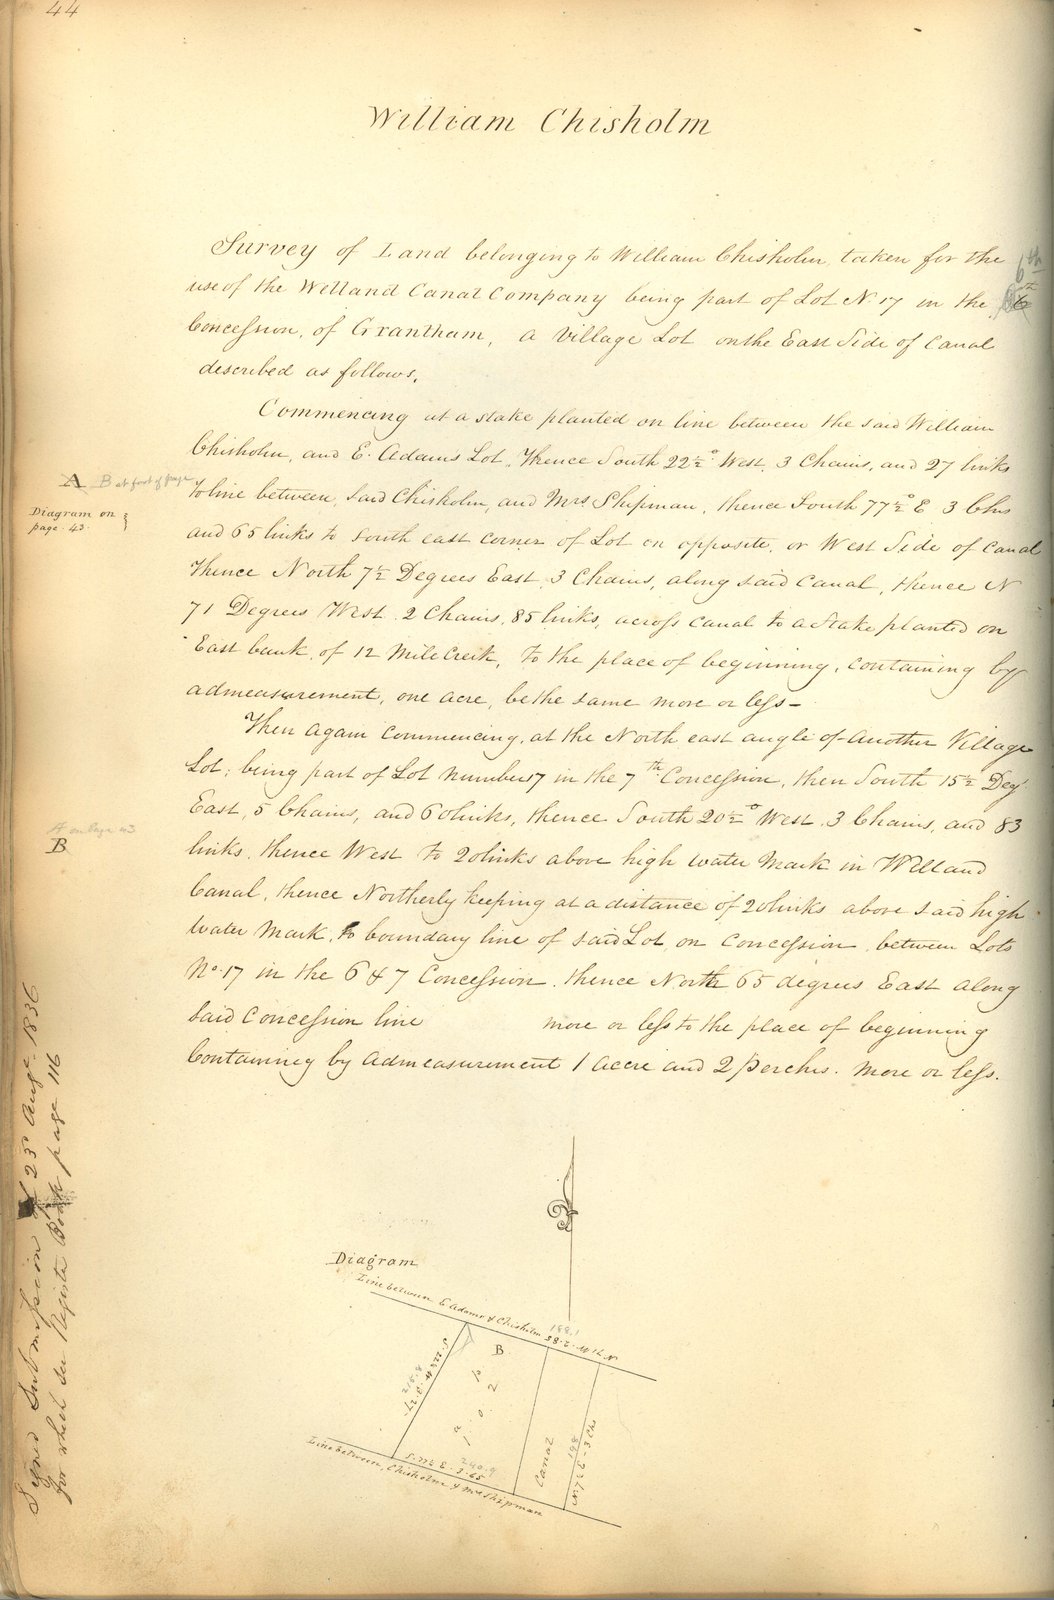 44
William Chisholm
Survey of Land belonging to William Chisholm taken for the
use of the Welland Canal Company being part of Lot N. 17 in the 6th
Concession, of Grantham, a Village Lot on the East Side of Canal
described as follows.
Commencing at a stake planted on line between the said William
Chisholm, and E. Adams Lot, Thence South 22½° West, 3 Chains, and 27 links
to line between, said Chisholm, and Mrs. Shipman, thence South 77½° E 3 Chs
and 65 links to south east corner of Lot on opposite, or West Side of Canal
Thence North 7½ Degrees East, 3 Chains, along said Canal, thence N
71 Degrees West, 2 Chains, 85 links, across canal to a Stake planted on
East bank, of 12 Mile Creek, to the place of beginning, containing by
admeasurement, one acre, be the same more or less –
Then again commencing, at the North east angle of Another Village
Lot; being part of Lot number 17 in the 7th Concession, then South 15½ Deg
East, 5 Chains, and 60 links, thence South 20½° West, 3 Chains, and 83
links, thence West to 20 links above high water Mark in Welland
Canal, thence Northerly keeping at a distance of 20 links above said high
water Mark, to boundary line of said Lot, on Concession, between Lots
No. 17 in the 6 & 7 Concession, thence North 65 degrees East along
said Concession line more or less to the place of beginning
Containing by Admeasurement 1 acre and 2 perches. More or less.
A B at foot of page
Diagram on
page. 43.
A on Page 43
B
Signed Submission 23d Augt. 1836
for which see Register Book page 116
Diagram
Line between E Adams & Chisholm
N 71 W. 2.85
188.1
B
S. 22½ W 3.27.
215.8
1 a. 0. 2 p.
Canal
N. 7½ E - 3 Chs
198
S. 77½ E. 3.65
240.9
Line between, Chisholm & Mrs Shipman